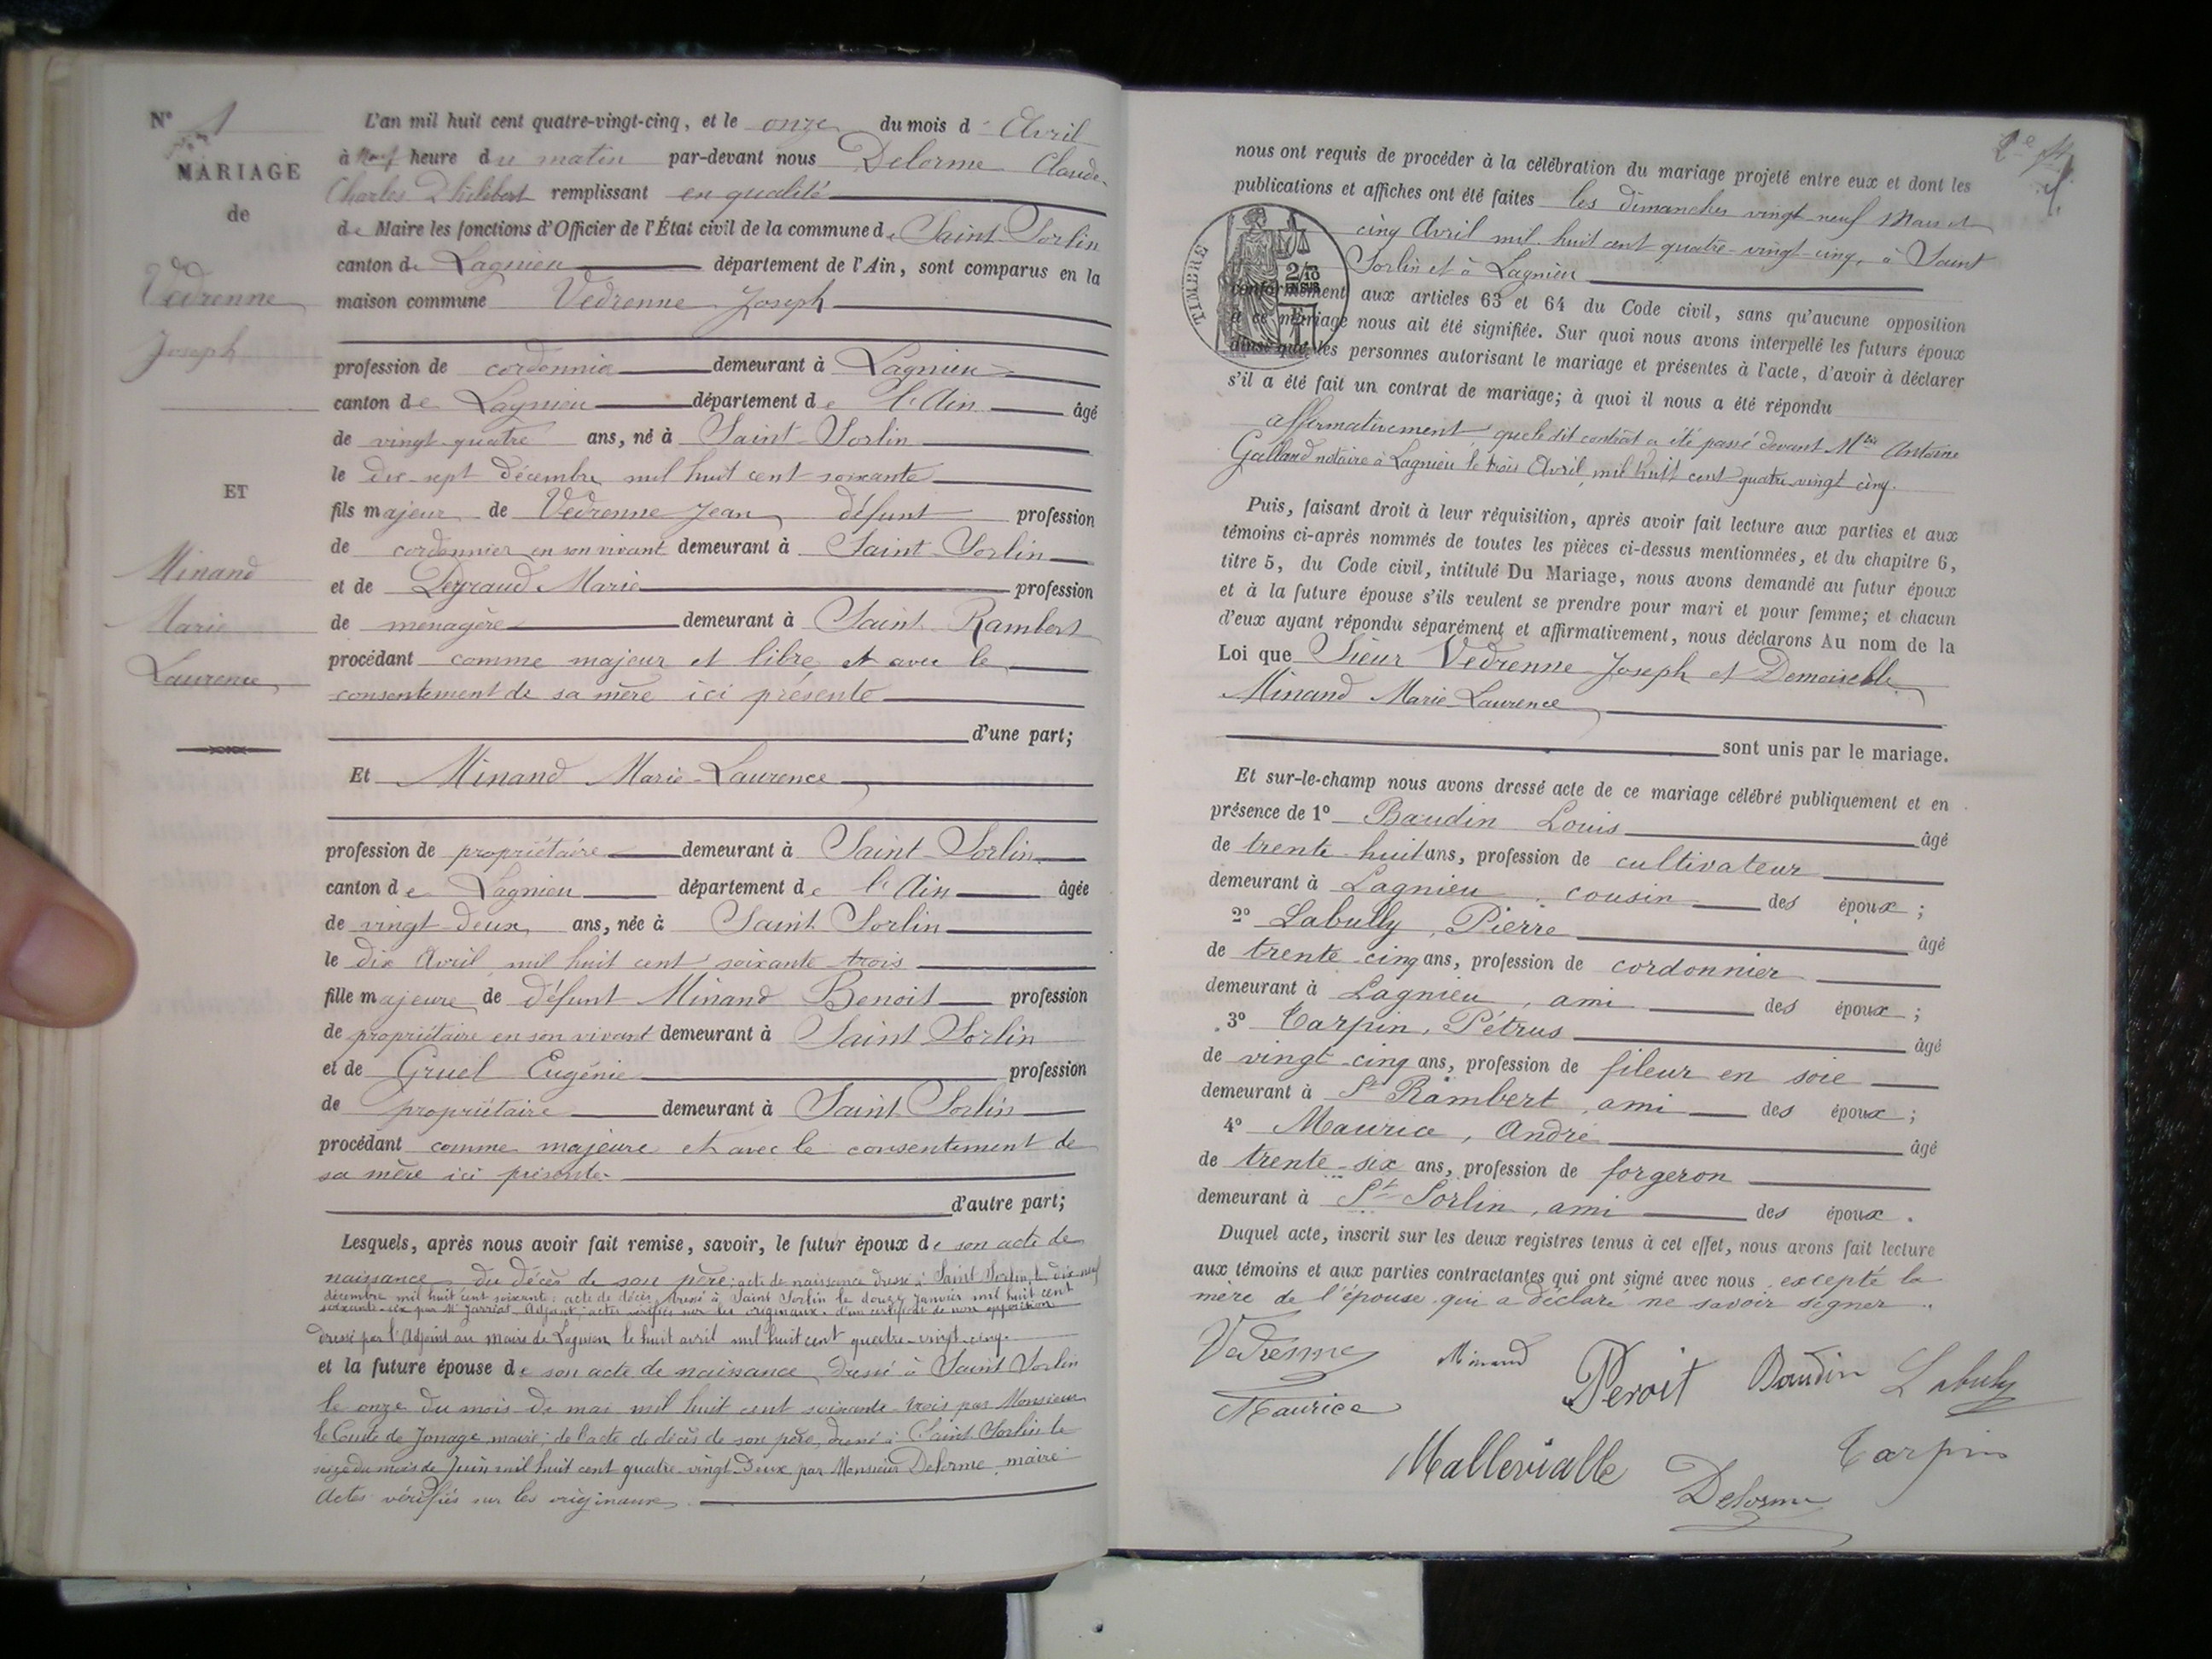 N° 1
MARIAGE
de
Vedrenne
Joseph
ET
Minand
Marie
Laurence
L'an mil huit cent quatre-vingt-cinq, et le onze du mois d' Avril
à Neuf heure du matin par-devant nous Delorme Claude
Charles Philibert remplissant en qualité
de Maire les fonctions d'Officier de l'État civil de la commune de Saint Sorlin
canton de Lagnieu département de l'Ain, sont comparus en la
maison commune Vedrenne Joseph
profession de cordonnier demeurant à Lagnieu
canton de Lagnieu département de l'Ain âgé
de vingt-quatre ans, né à Saint-Sorlin
le dix-sept décembre mil huit cent soixante
fils majeur de Vedrenne Jean défunt profession
de cordonnier en son vivant demeurant à Saint-Sorlin
et de Marie profession
de ménagère demeurant à Saint Rambert
procédant comme majeur et libre et avec le
consentement de sa mère ici présente
d'une part;
Et Minand Marie-Laurence
profession de propriétaire demeurant à Saint-Sorlin
canton de Lagnieu département de l'Ain âgée
de vingt-deux ans, née à Saint Sorlin
le dix Avril mil huit cent soixante-trois
fille majeure de défunt Minand Benoit profession
de propriétaire en son vivant demeurant à Saint Sorlin
et de Gruel Eugénie profession
de propriétaire demeurant à Saint Sorlin
procédant comme majeure et avec le consentement de
sa mère ici présente
d'autre part;
Lesquels, après nous avoir fait remise, savoir, le futur époux de son acte de
naissance du décès de son père; acte de naissance dressé à Saint Sorlin le dix-neuf
décembre mil huit cent soixante; acte de décès, dressé à Saint Sorlin le douze Janvier mil huit cent
soixante-six par Mr Jarriat Adjoint; actes vérifiés sur les originaux. d'un certificat de non opposition
dressé par l'Adjoint au maire de Lagnieu le huit avril mil huit cent quatre-vingt-cinq.
et la future épouse de son acte de naissance dressé à Saint Sorlin
le onze du mois de mai mil huit cent soixante-trois par Monsieur
le Comte de Jonage maire; de l'acte de décès de son père, dressé à Saint Sorlin le
seize du mois de Juin mil huit cent quatre-vingt-deux par Monsieur Delorme, maire
Actes vérifiés sur les originaux.
nous ont requis de procéder à la célébration du mariage projeté entre eux et dont les
publications et affiches ont été faites les dimanches vingt neuf Mars et
cinq Avril mil huit cent quatre-vingt-cinq, à Saint
Sorlin et à Lagnieu
TIMBRE
conformément aux articles 63 et 64 du Code civil, sans qu'aucune opposition
à ce mariage nous ait été signifiée. Sur quoi nous avons interpellé les futurs époux
ainsi que les personnes autorisant le mariage et présentes à l'acte, d'avoir à déclarer
s'il a été fait un contrat de mariage; à quoi il nous a été répondu
affirmativement que le dit contrat a été passé devant Mtre Antoine
Galland notaire à Lagnieu le trois Avril mil huit cent quatre vingt cinq.
Puis, faisant droit à leur réquisition, après avoir fait lecture aux parties et aux
témoins ci-après nommés de toutes les pièces ci-dessus mentionnées, et du chapitre 6,
titre 5, du Code civil, intitulé Du Mariage, nous avons demandé au futur époux
et à la future épouse s'ils veulent se prendre pour mari et pour femme; et chacun
d'eux ayant répondu séparément et affirmativement, nous déclarons Au nom de la
Loi que Sieur Vedrenne Joseph et Demoiselle
Minand Marie-Laurence
sont unis par le mariage.
Et sur-le-champ nous avons dressé acte de ce mariage célébré publiquement et en
présence de 1° Baudin Louis âgé
de trente-huit ans, profession de cultivateur
demeurant à Lagnieu, cousin des époux;
2° Labully, Pierre âgé
de trente-cinq ans, profession de cordonnier
demeurant à Lagnieu, ami des époux;
3° Carpin, Pétrus âgé
de vingt-cinq ans, profession de fileur en soie
demeurant à St Rambert, ami des époux;
4° Maurice, André âgé
de trente-six ans, profession de forgeron
demeurant à St Sorlin, ami des époux.
Duquel acte, inscrit sur les deux registres tenus à cet effet, nous avons fait lecture
aux témoins et aux parties contractantes qui ont signé avec nous, excepté la
mère de l'épouse qui a déclaré ne savoir signer.
Vedrenne Minand Benoit Baudin Labully
Maurice
Mallevialle Carpin
Delorme